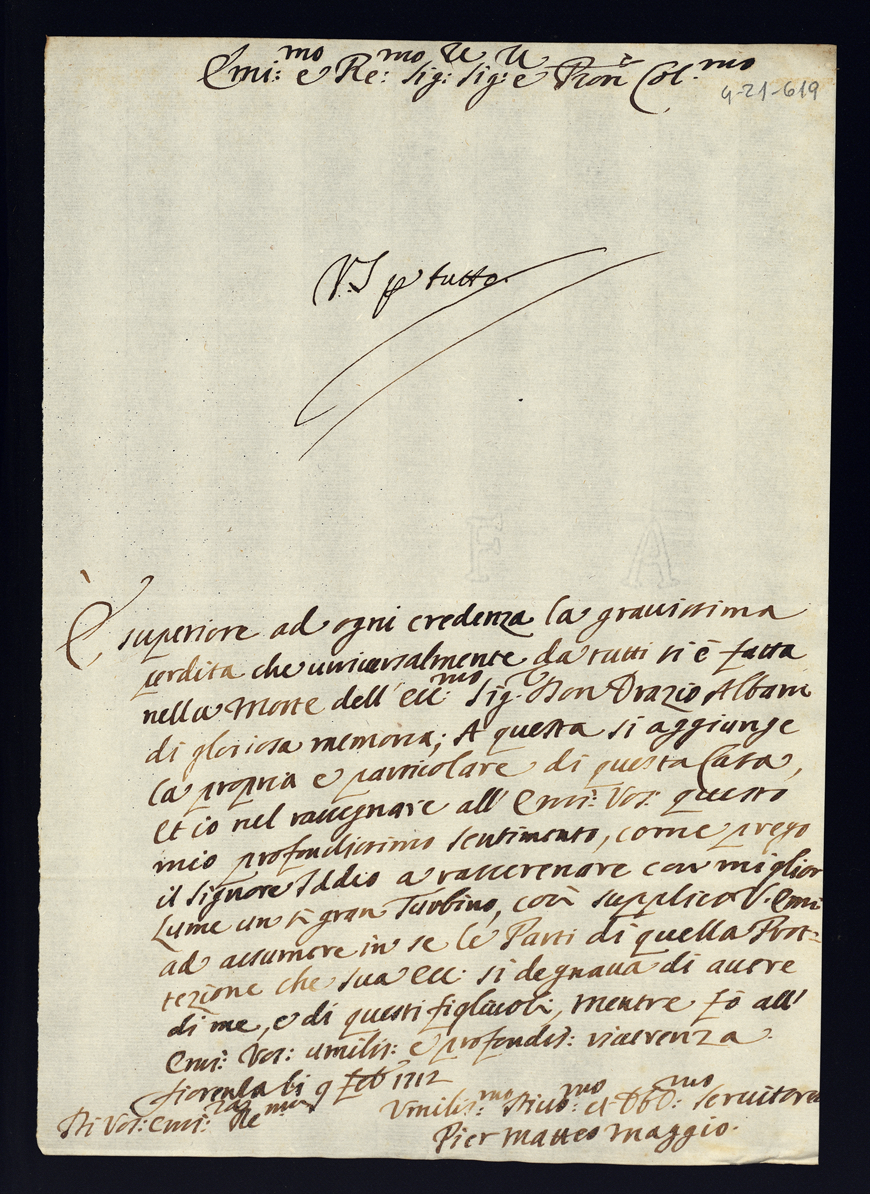 Emi:mo e Re:mo Sig:r Sig:r e Pron Col:mo
9-21-619
V.S p tutto.
È superiore ad ogni credenza la grauissima
perdita che universalmente da tutti si è fatta
nella Morte dell' ecc:mo Sig.r Don Orazio Albani
di gloriosa memoria; A questa si aggiunge
la propria e particolare di questa Casa,
et io nel rassegnare all' Emi: Vos: questo
mio profondissimo sentimento, come prego
il Signore Iddio a rasserenare con miglior
Lume un sì gran Turbino, così supplico V. Emi
ad assumere in se le Parti di quella Prot=
tezione che sua ecc: si degnaua di auere
di me, e di questi figliuoli, mentre fò all'
Emi: Vos: umilis: e profondis: riuerenza.
fiorenza li 9 Feb 1712
Di Vos: Emi:za Re:ma
Vmilis:mo Diuo:mo et Obb:mo seruitore
Pier Matteo Maggio.